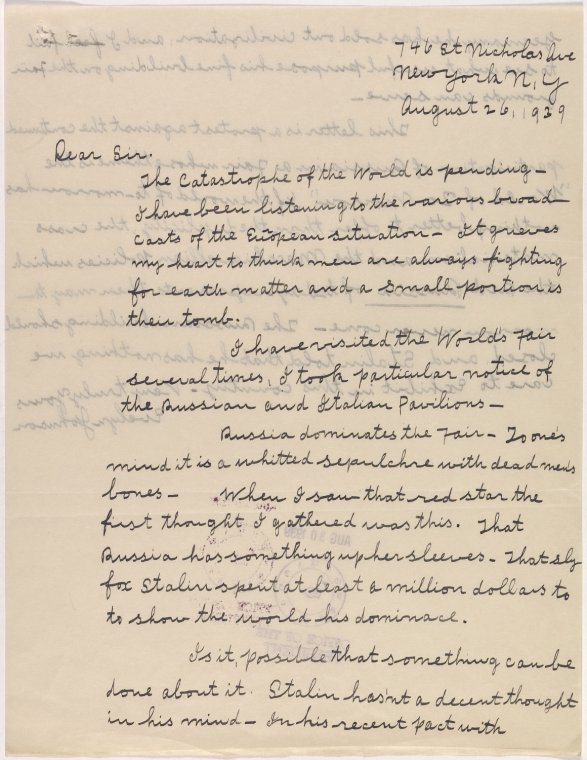 746 St Nicholas Ave
New York N, Y
August 26, 1939
Dear Sir.
The Catastrophe of the World is pending -
I have been listening to the various broad
casts of the European situation - It grieves
my heart to think men are always fighting
for earth matter and a small portion is
their tomb.
I have visited the World's Fair
several times, I took particular notice of
the Russian and Italian Pavilions -
Russia dominates the Fair - To one's
mind it is a whitted sepulchre with dead men's
bones - When I saw that red star the
first thought I gathered was this. That
Russia has something up her sleeves - That sly
fox Stalin spent at least a million dollars to
to show the world his dominace.
Is it, possible that something can be
done about it. Stalin hasn't a decent thought
in his mind - In his recent pact with